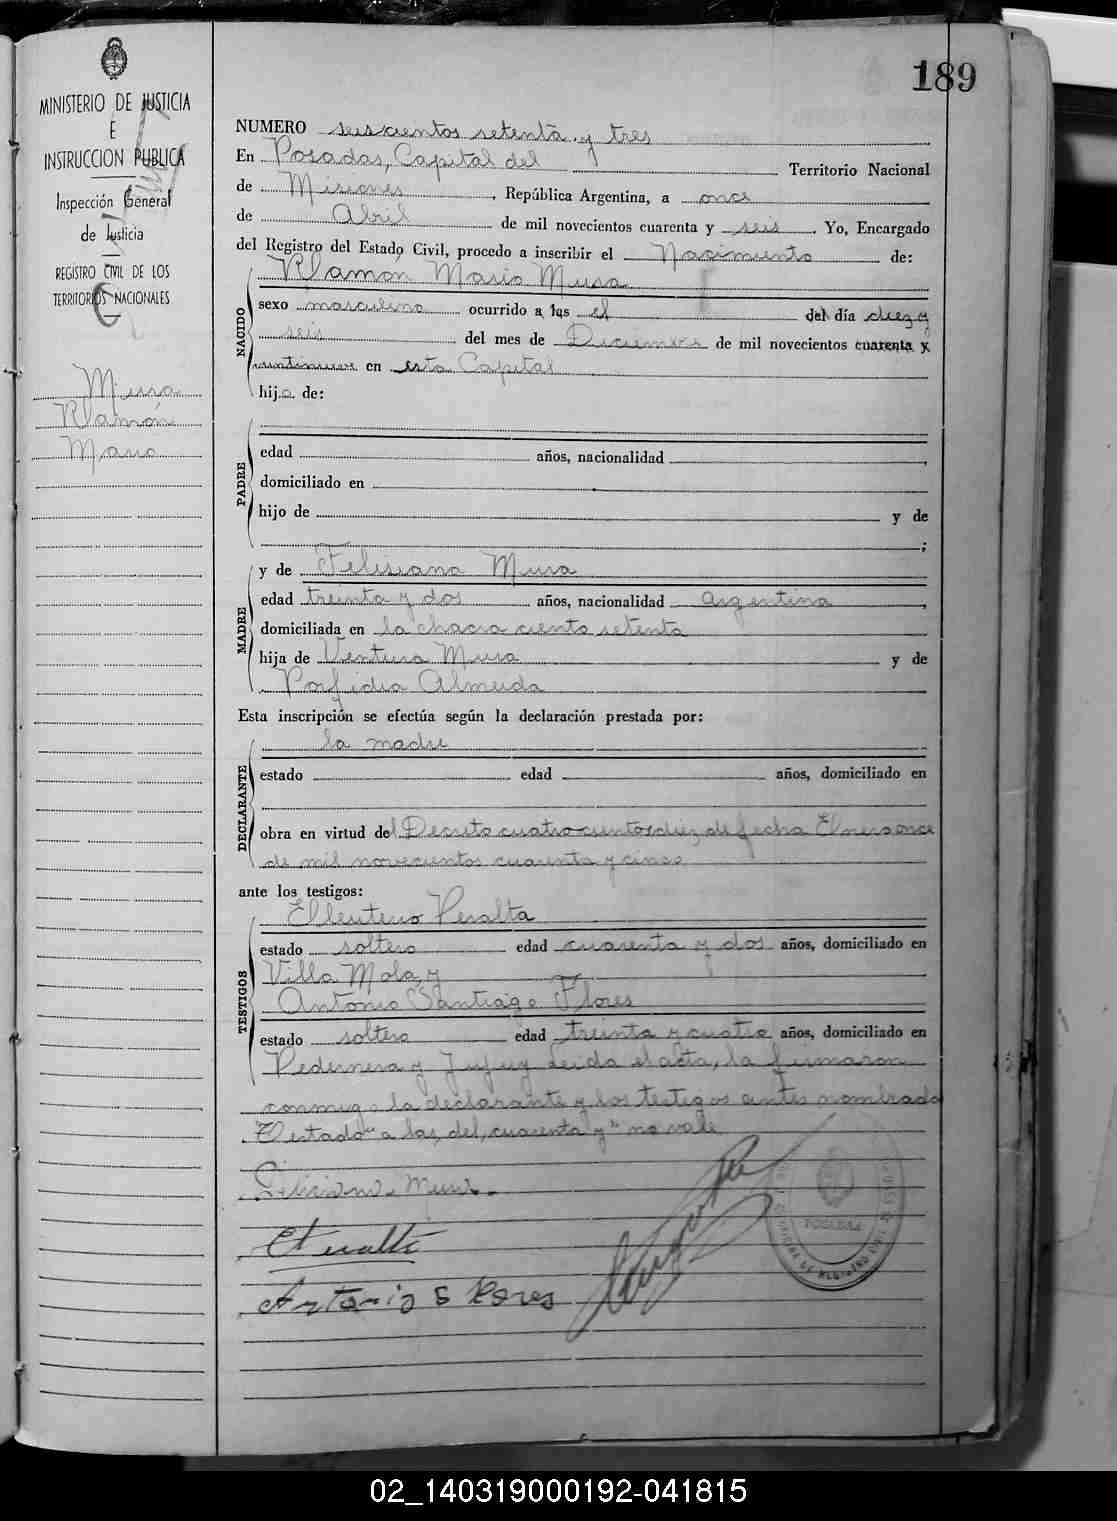 189
MINISTERIO DE JUSTICIA
E
INSTRUCCION PUBLICA
Inspección General
de Justicia
REGISTRO CIVIL DE LOS
TERRITORIOS NACIONALES
Musa
Ramón
Mario
NUMERO seiscientos setenta y tres
En Posadas, Capital del Territorio Nacional
de Misiones, República Argentina, a once
de Abril de mil novecientos cuarenta y seis. Yo, Encargado
del Registro del Estado Civil, procedo a inscribir el Nacimiento de:
NACIDO
Ramon Mario Musa
sexo masculino ocurrido a las el del día diez y
seis del mes de Diciembre de mil novecientos cuarenta y
veintinueve en esta Capital
hijo de:
PADRE
edad años, nacionalidad
domiciliado en
hijo de y de
;
MADRE
y de Felisiana Musa
edad treinta y dos años, nacionalidad argentina,
domiciliada en la chacra ciento setenta
hija de Ventura Musa y de
Porfidia Almeida
Esta inscripción se efectúa según la declaración prestada por:
DECLARANTE
la madre
estado edad años, domiciliado en
obra en virtud del Decreto cuatrocientos diez de fecha Enero once
de mil novecientos cuarenta y cinco
ante los testigos:
TESTIGOS
Elleuterio Peralta
estado soltero edad cuarenta y dos años, domiciliado en
Villa Mola y
Antonio Santiago Flores
estado soltero edad treinta y cuatro años, domiciliado en
Pedernera y Jujuy Leida el acta, la firmaron
conmigo la declarante y los testigos antes nombrado
Testado "a las, del, cuarenta y" no vale
Feliciana Musa
EPeralta
Antonio S Flores
POSADAS
02_140319000192-041815